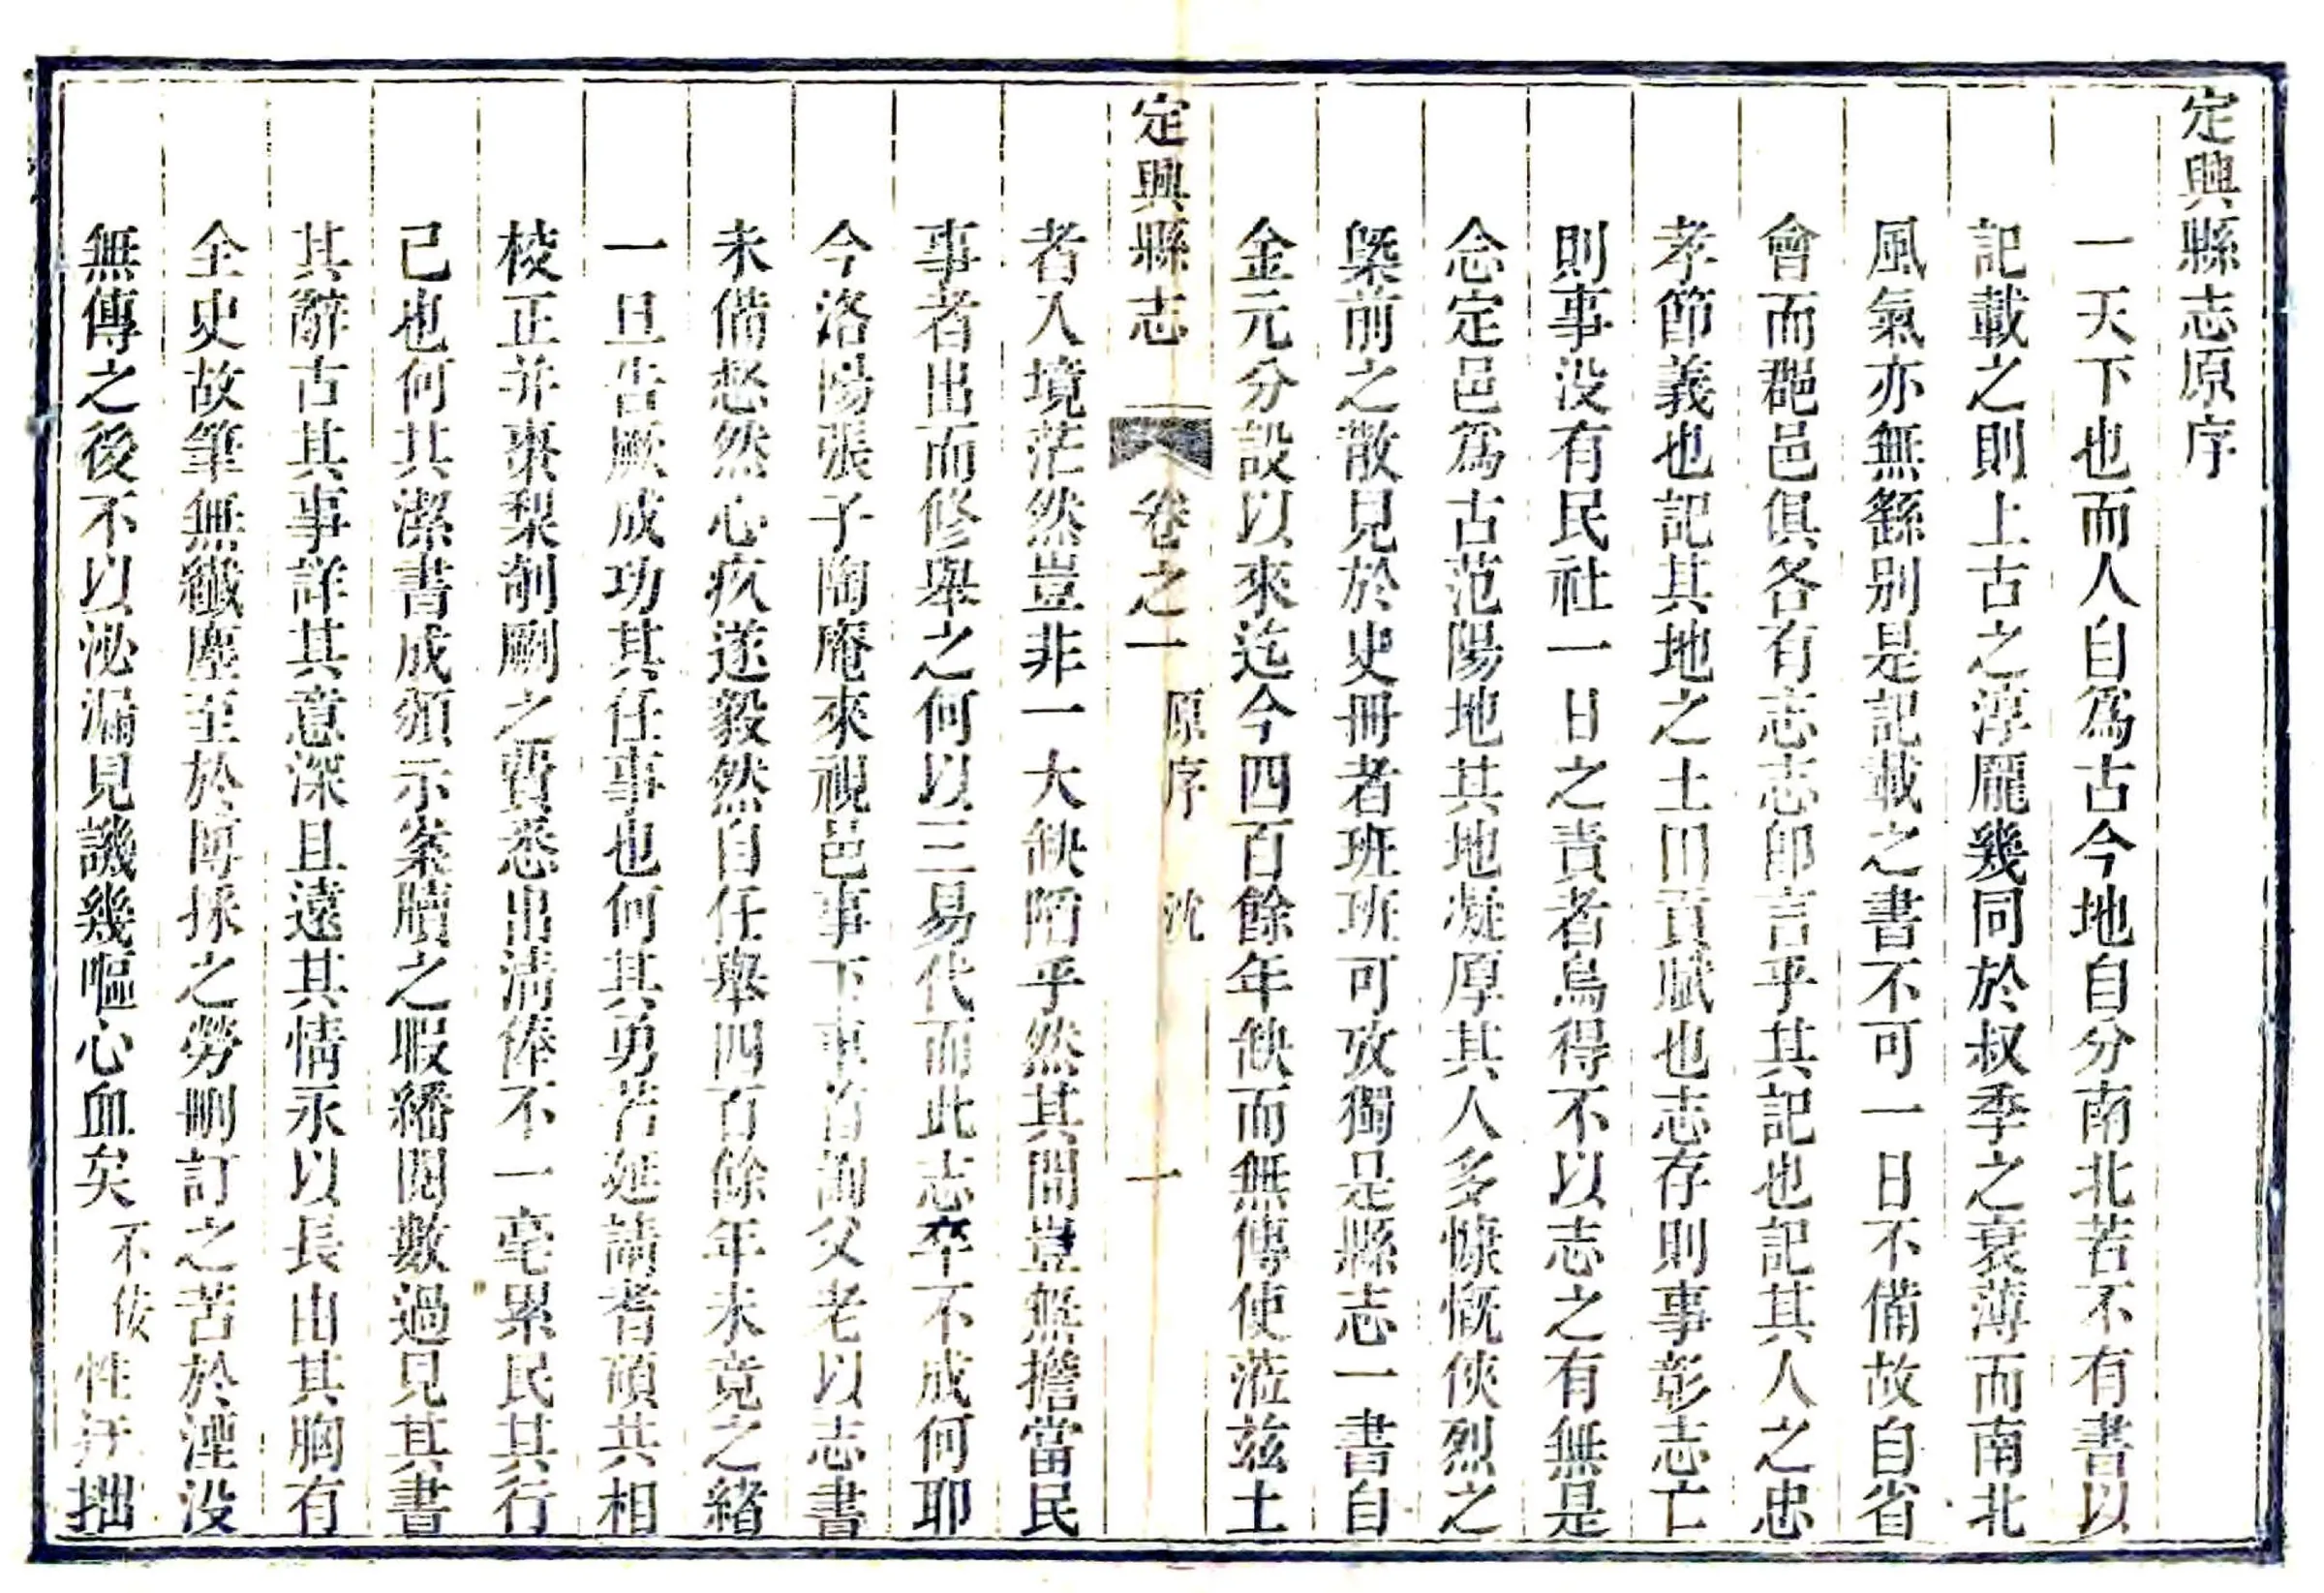 定興縣志原序
一天下也而人自爲古今地自分南北若不有書以
記載之則上古之淳龐幾同於叔季之衰薄而南北
風氣亦無繇别是記載之書不可一日不備故自省
會而郡邑俱各有志志卽言乎其記也記其人之忠
孝節義也記其地之土田貢賦也志存則事彰志亡
則事没有民社一日之責者烏得不以志之有無是
念定邑爲古范陽地其地凝厚其人多慷慨俠烈之
槩前之散見於史冊者班班可攷獨是縣志一書自
金元分設以來迄今四百餘年缺而無傳使蒞兹土
定興縣志 卷之一 原序 沈 一
者入境茫然豈非一大缺陷乎然其間豈無擔當民
事者出而修舉之何以三易代而此志卒不成何耶
今洛陽張子陶庵來視邑事下車首詢父老以志書
未備惄然心疚遂毅然自任舉四百餘年未竟之緒
一旦告厥成功其任事也何其勇若延請耆碩共相
校正并棗梨剞劂之費悉出清俸不一毫累民其行
己也何其潔書成頒示案牘之暇繙閱數過見其書
其辭古其事詳其意深且遠其情永以長由其胸有
全史故筆無纎塵至於博採之勞刪訂之苦於湮没
無傳之後不以泌漏見譏幾嘔心血矣不佞性迂拙